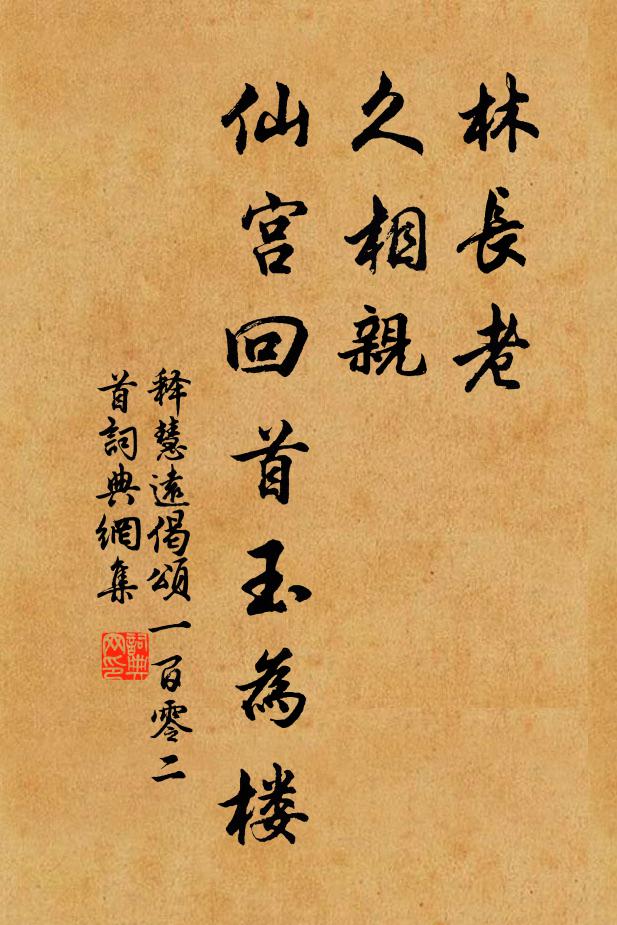 林長老
久相親
仙宫回首玉為楼
释慧遠偈頌一百零二
首詞典網集
詞典
网印